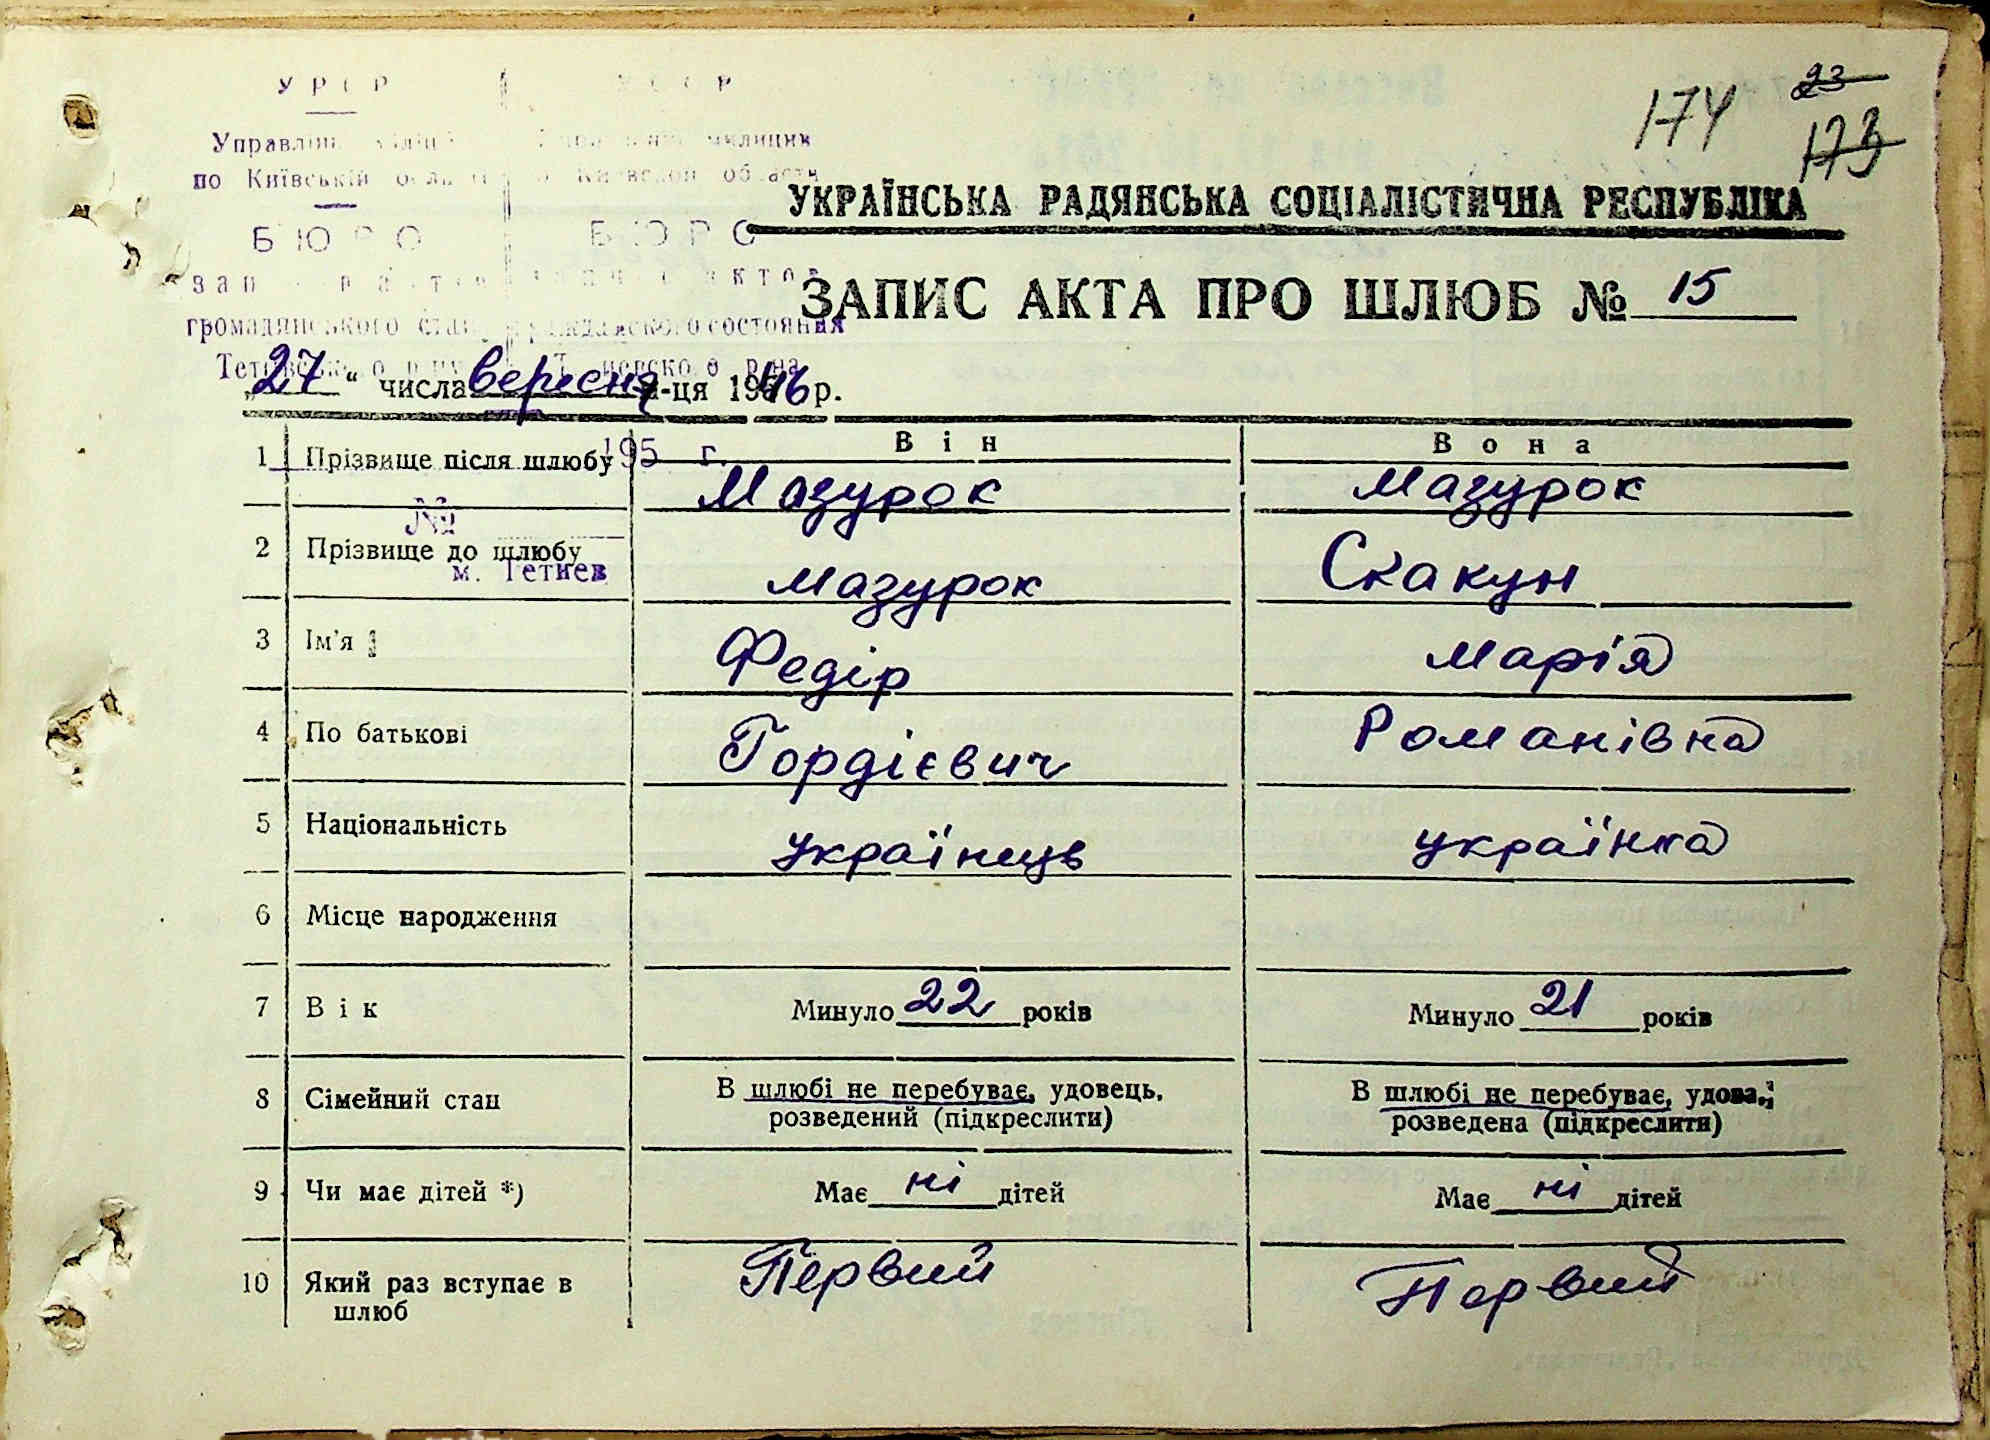 174 23
173
УРСР УССР
Управління міліції Управление милиции
по Київській області по Киевской области
УКРАЇНСЬКА РАДЯНСЬКА СОЦІАЛІСТИЧНА РЕСПУБЛІКА
БЮРО БЮРО
ЗАПИС АКТА ПРО ШЛЮБ № 15
громадянського стану гражданского состояния
„27“ числа вересня м-ця 1946 р.
195 г.
Він Вона
1 Прізвище після шлюбу Мазурок Мазурок
№
2 Прізвище до шлюбу Мазурок Скакун
м. Тетиев
3 Ім'я Федір Марія
4 По батькові Гордієвич Романівна
5 Національність українець українка
6 Місце народження
7 Вік Минуло 22 років Минуло 21 років
8 Сімейний стан В шлюбі не перебуває, удовець, В шлюбі не перебуває, удова,
розведений (підкреслити) розведена (підкреслити)
9 Чи має дітей *) Має ні дітей Має ні дітей
10 Який раз вступає в Первий Первий
шлюб